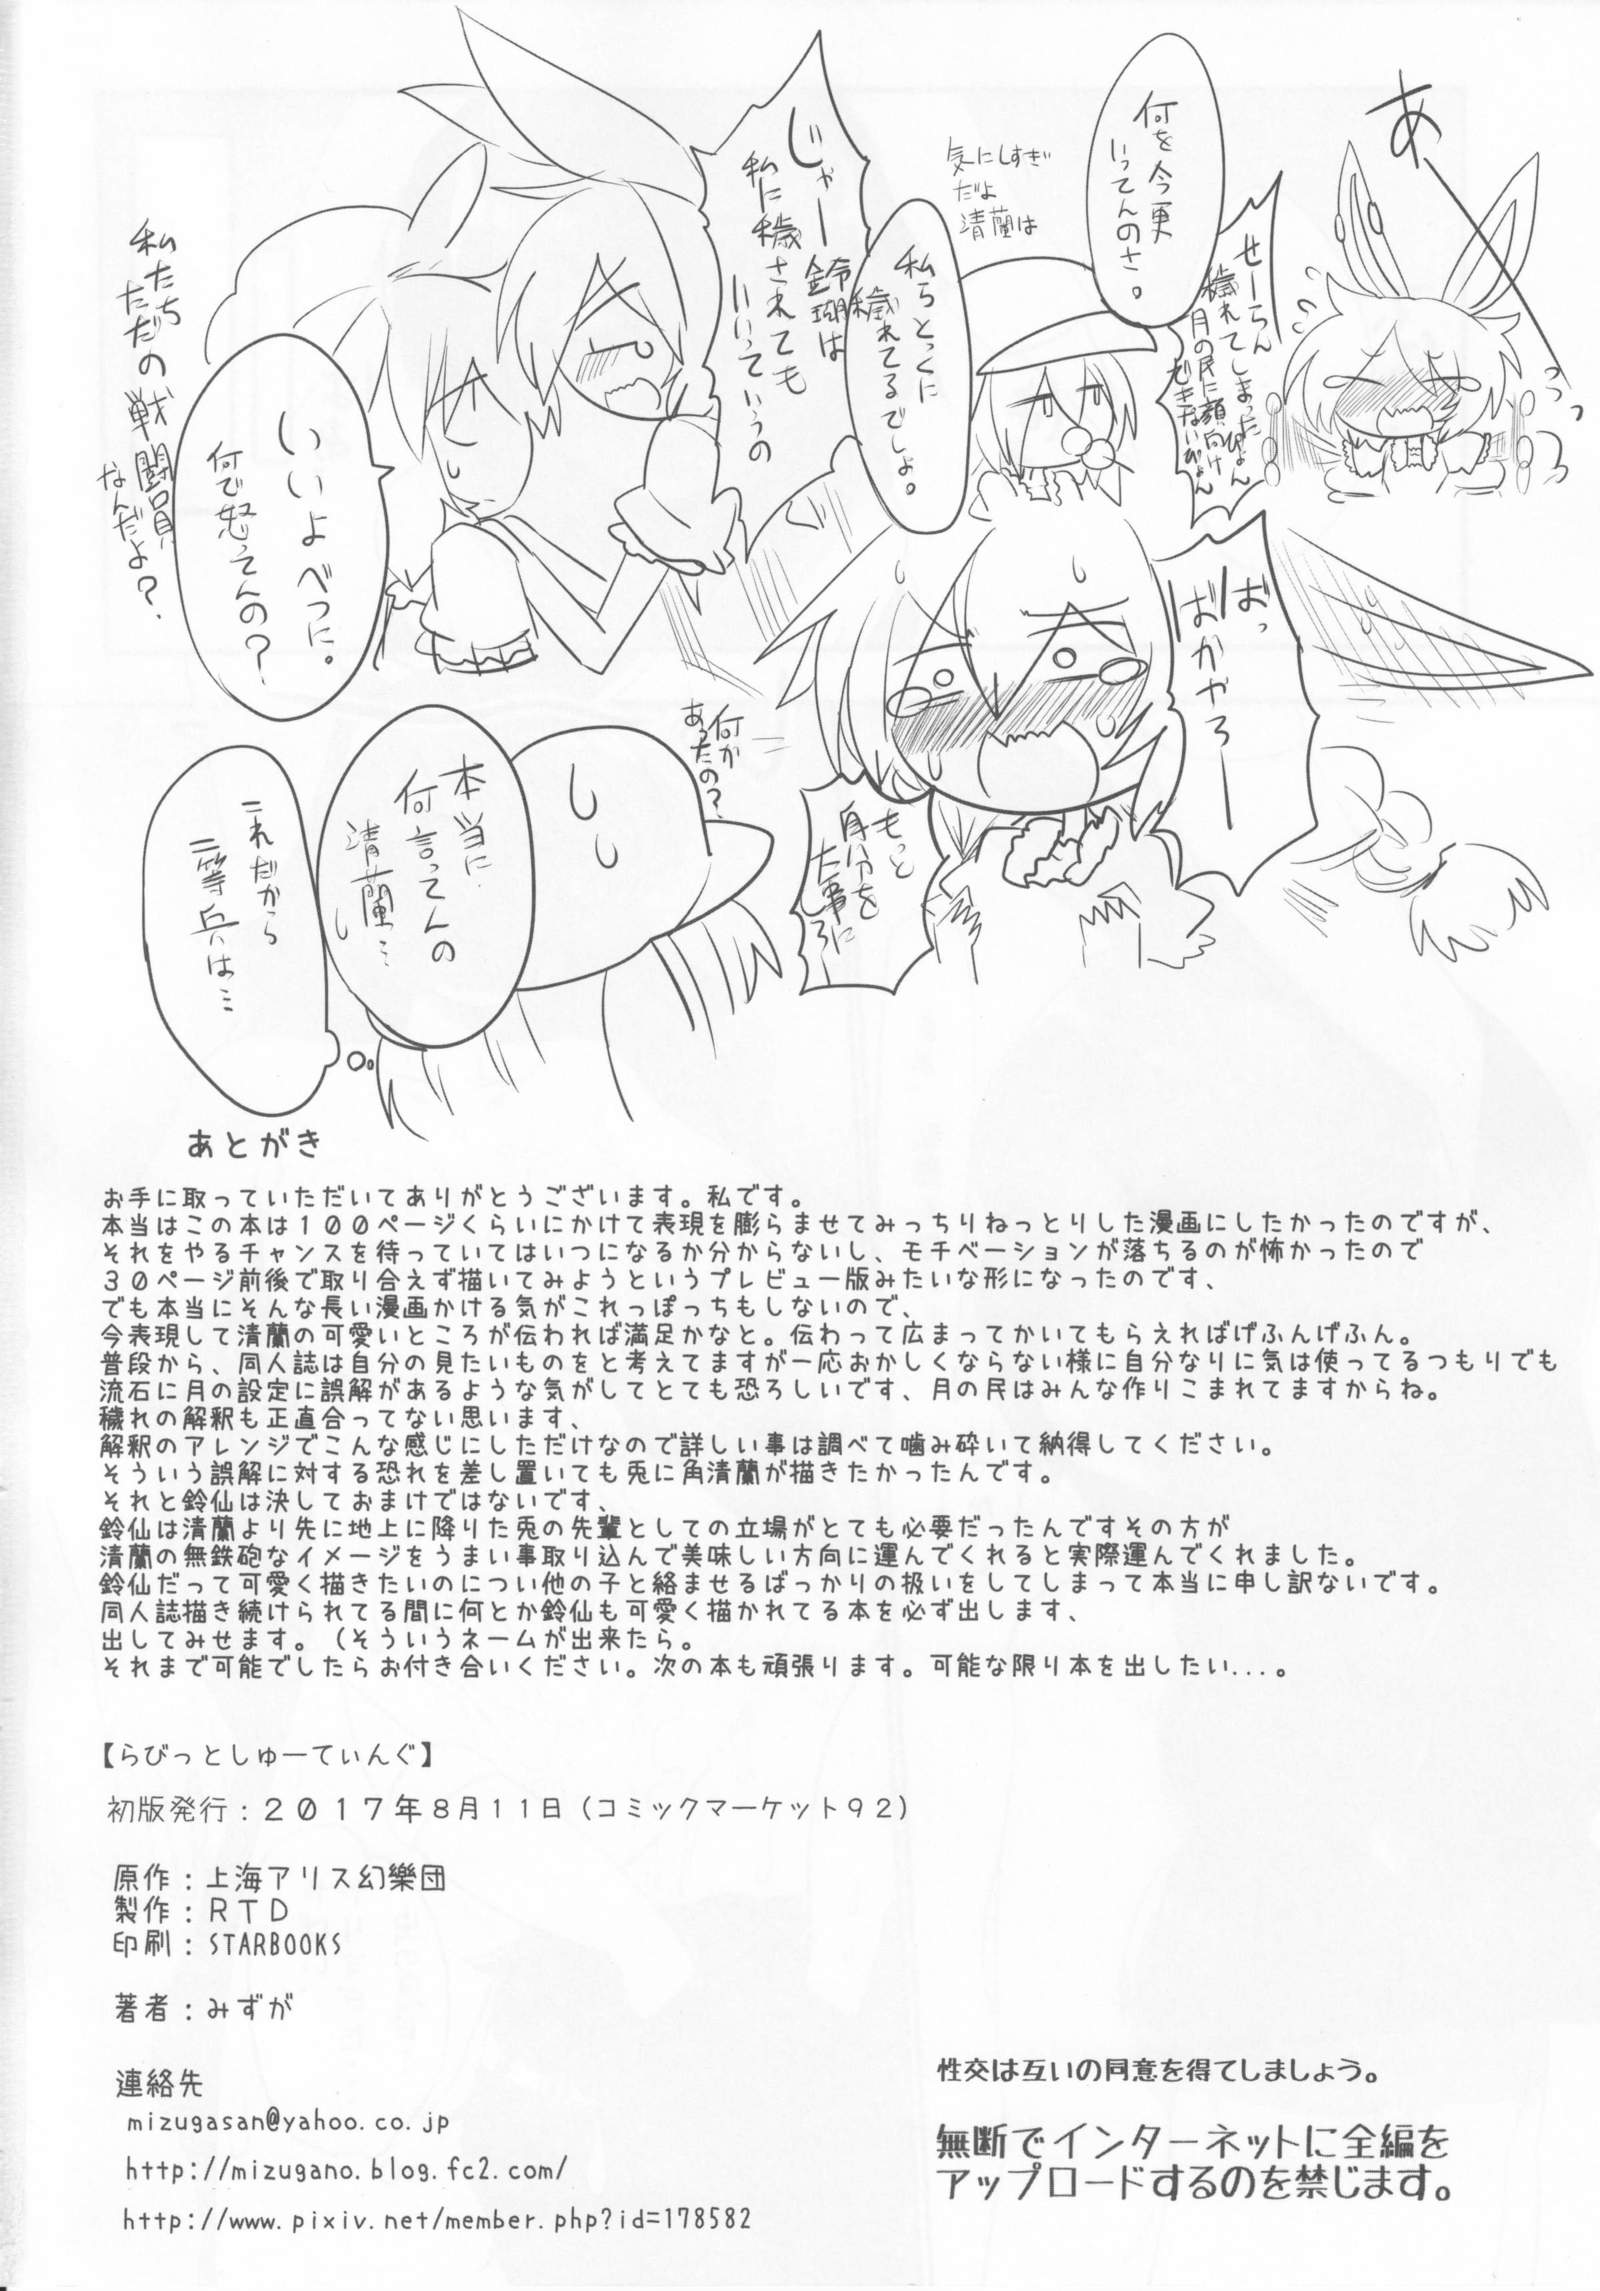 あ
うっ
うぅ
せーらん
穢れてしまったぴょん
月の民に顔向け
できないぴょん
何を今更
いってんのさ。
気にしすぎ
だよ
清蘭は
私らとっくに
穢れてるでしょ。
じゃー鈴瑚は
私に穢されても
いいっていうの
いいよべつに。
何で怒ってんの?
私たち
ただの戦闘員
なんだよ?
ばっ
ばかやろー
もっと
自分を
大事に
しろ
何か
あったの?
本当に
何言ってんの
清蘭…
これだから
二等兵は…
あとがき
お手に取っていただいてありがとうございます。私です。
本当はこの本は100ページくらいにかけて表現を膨らませてみっちりねっとりした漫画にしたかったのですが、
それをやるチャンスを待っていてはいつになるか分からないし、モチベーションが落ちるのが怖かったので
30ページ前後で取り合えず描いてみようというプレビュー版みたいな形になったのです、
でも本当にそんな長い漫画かける気がこれっぽっちもしないので、
今表現して清蘭の可愛いところが伝われば満足かなと。伝わって広まってかいてもらえればげふんげふん。
普段から、同人誌は自分の見たいものをと考えてますが一応おかしくならない様に自分なりに気は使ってるつもりでも
流石に月の設定に誤解があるような気がしてとても恐ろしいです、月の民はみんな作りこまれてますからね。
穢れの解釈も正直合ってない思います、
解釈のアレンジでこんな感じにしただけなので詳しい事は調べて噛み砕いて納得してください。
そういう誤解に対する恐れを差し置いても兎に角清蘭が描きたかったんです。
それと鈴仙は決しておまけではないです、
鈴仙は清蘭より先に地上に降りた兎の先輩としての立場がとても必要だったんですその方が
清蘭の無鉄砲なイメージをうまい事取り込んで美味しい方向に運んでくれると実際運んでくれました。
鈴仙だって可愛く描きたいのについ他の子と絡ませるばっかりの扱いをしてしまって本当に申し訳ないです。
同人誌描き続けられてる間に何とか鈴仙も可愛く描かれてる本を必ず出します、
出してみせます。(そういうネームが出来たら。
それまで可能でしたらお付き合いください。次の本も頑張ります。可能な限り本を出したい...。
【らびっとしゅーてぃんぐ】
初版発行:2017年8月11日(コミックマーケット92)
原作:上海アリス幻樂団
製作:RTD
印刷:STARBOOKS
著者:みずが
連絡先
mizugasan@yahoo.co.jp
http://mizugano.blog.fc2.com/
http://www.pixiv.net/member.php?id=178582
性交は互いの同意を得てしましょう。
無断でインターネットに全編を
アップロードするのを禁じます。